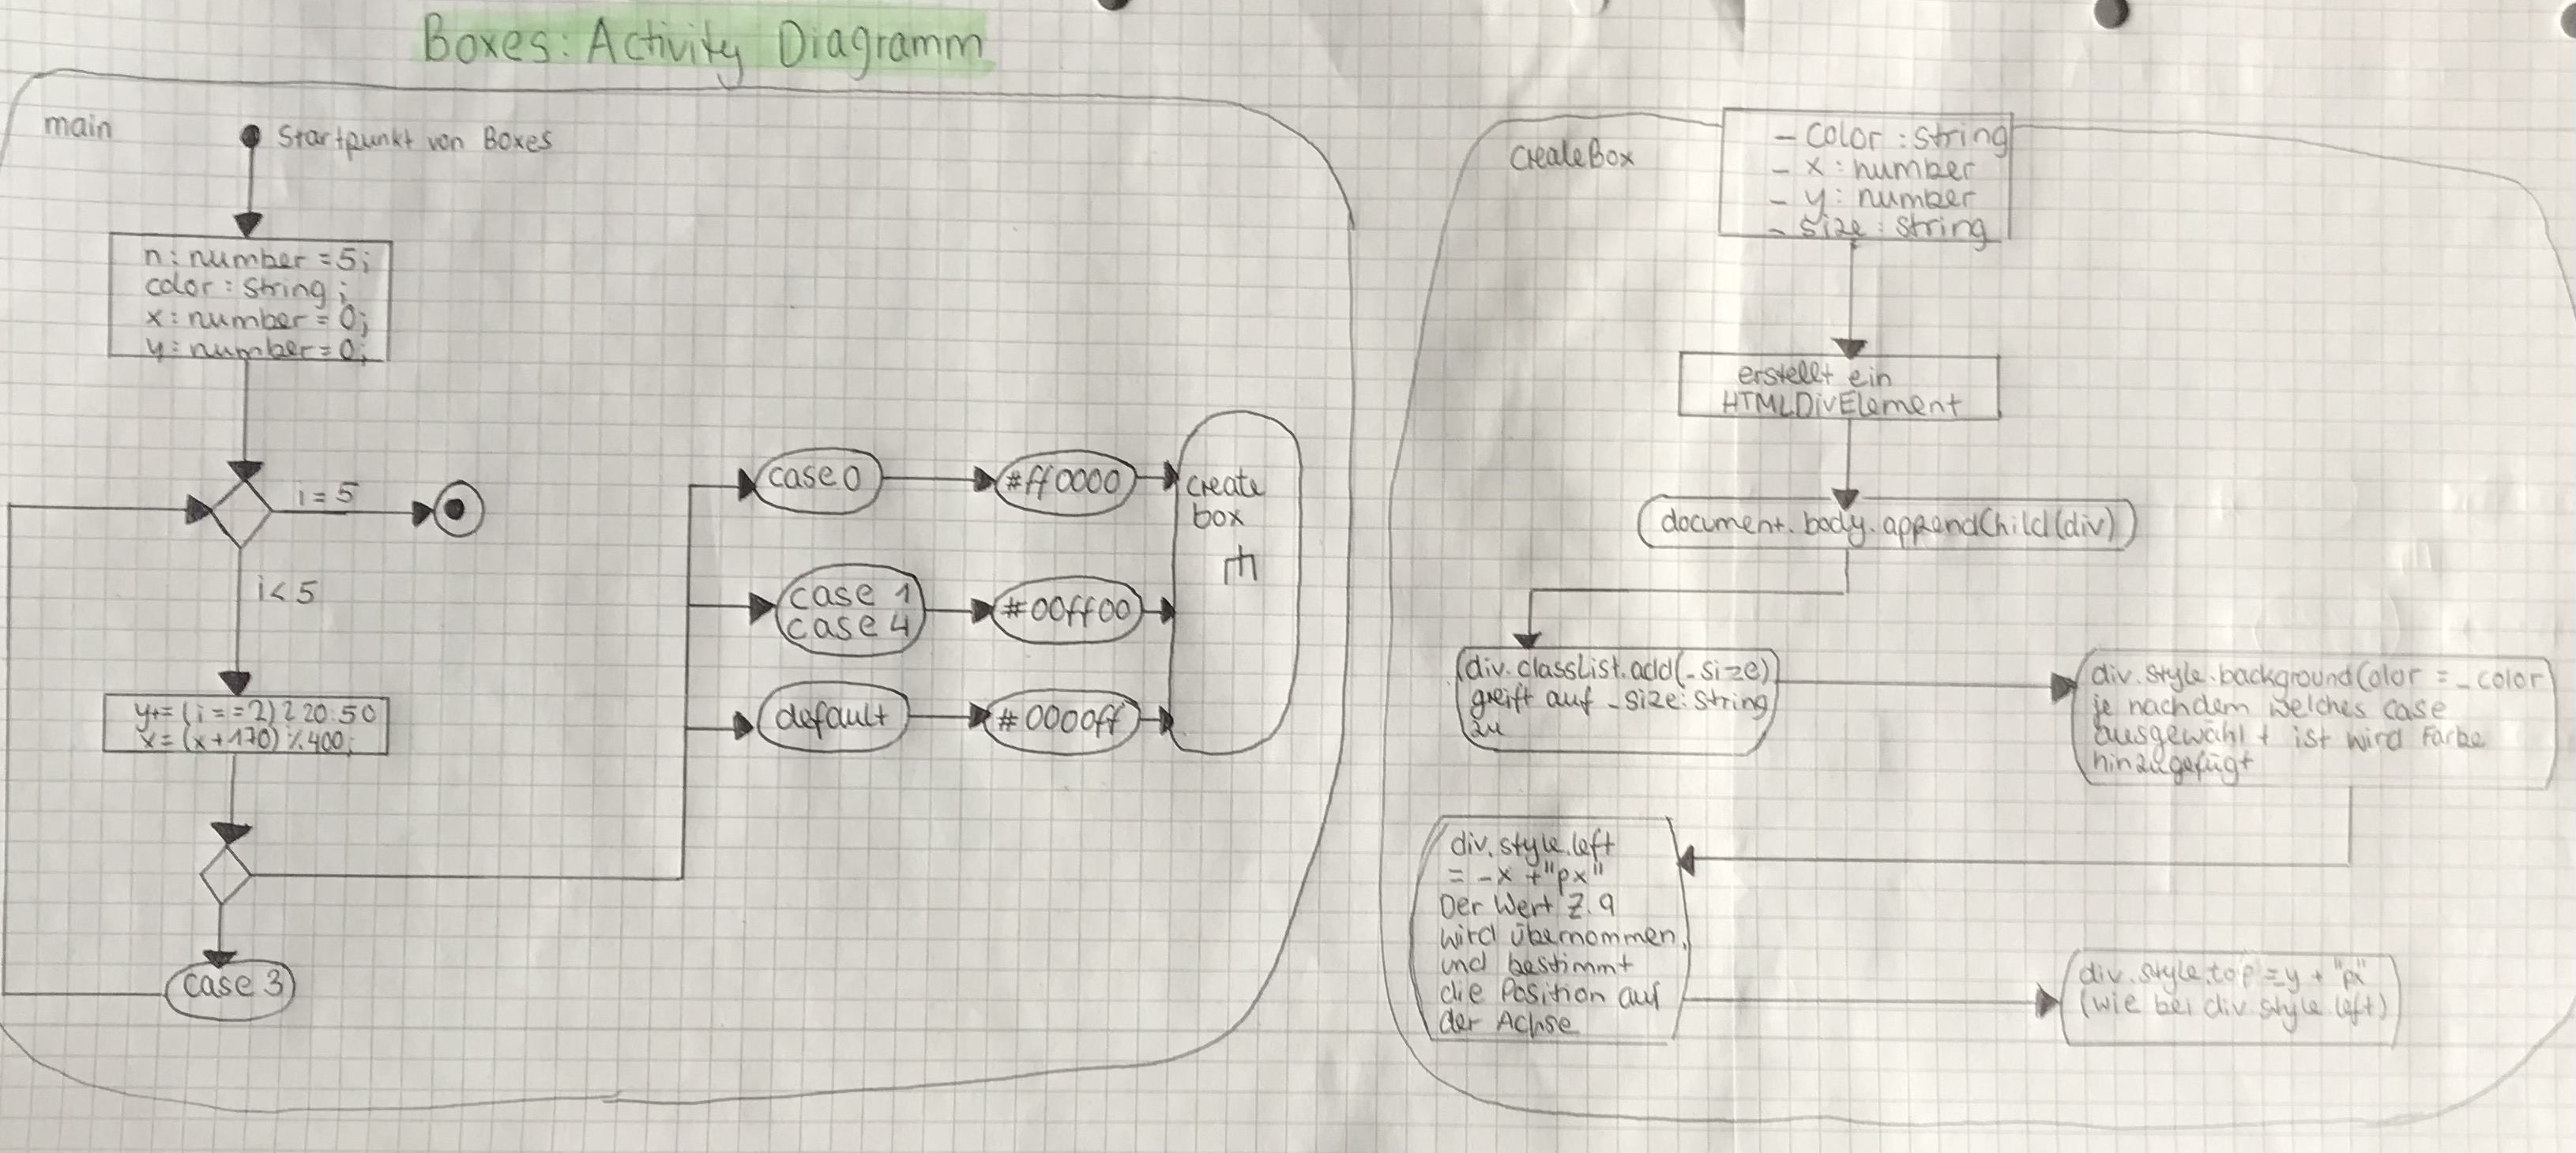 Boxes: Activity Diagramm
main
Startpunkt von Boxes
n: number = 5;
color: string;
x: number = 0;
y: number = 0;
i = 5
i < 5
y+= (i == 2) ? 20:50
x = (x+170) % 400;
case 3
case 0
#ff0000
case 1
case 4
#00ff00
default
#0000ff
create
box
CreateBox
- Color : string
- x : number
- y : number
- size : string
erstellt ein
HTMLDivElement
document.body.appendChild(div)
div.classList.add(_size)
greift auf _size: string
zu
div.style.backgroundColor = _color
je nachdem welches case
ausgewählt ist wird Farbe
hinzugefügt
div.style.left
= -x + "px"
Der Wert Z.9
wird übernommen,
und bestimmt
die Position auf
der Achse
div.style.top = y + "px"
(wie bei div.style left)